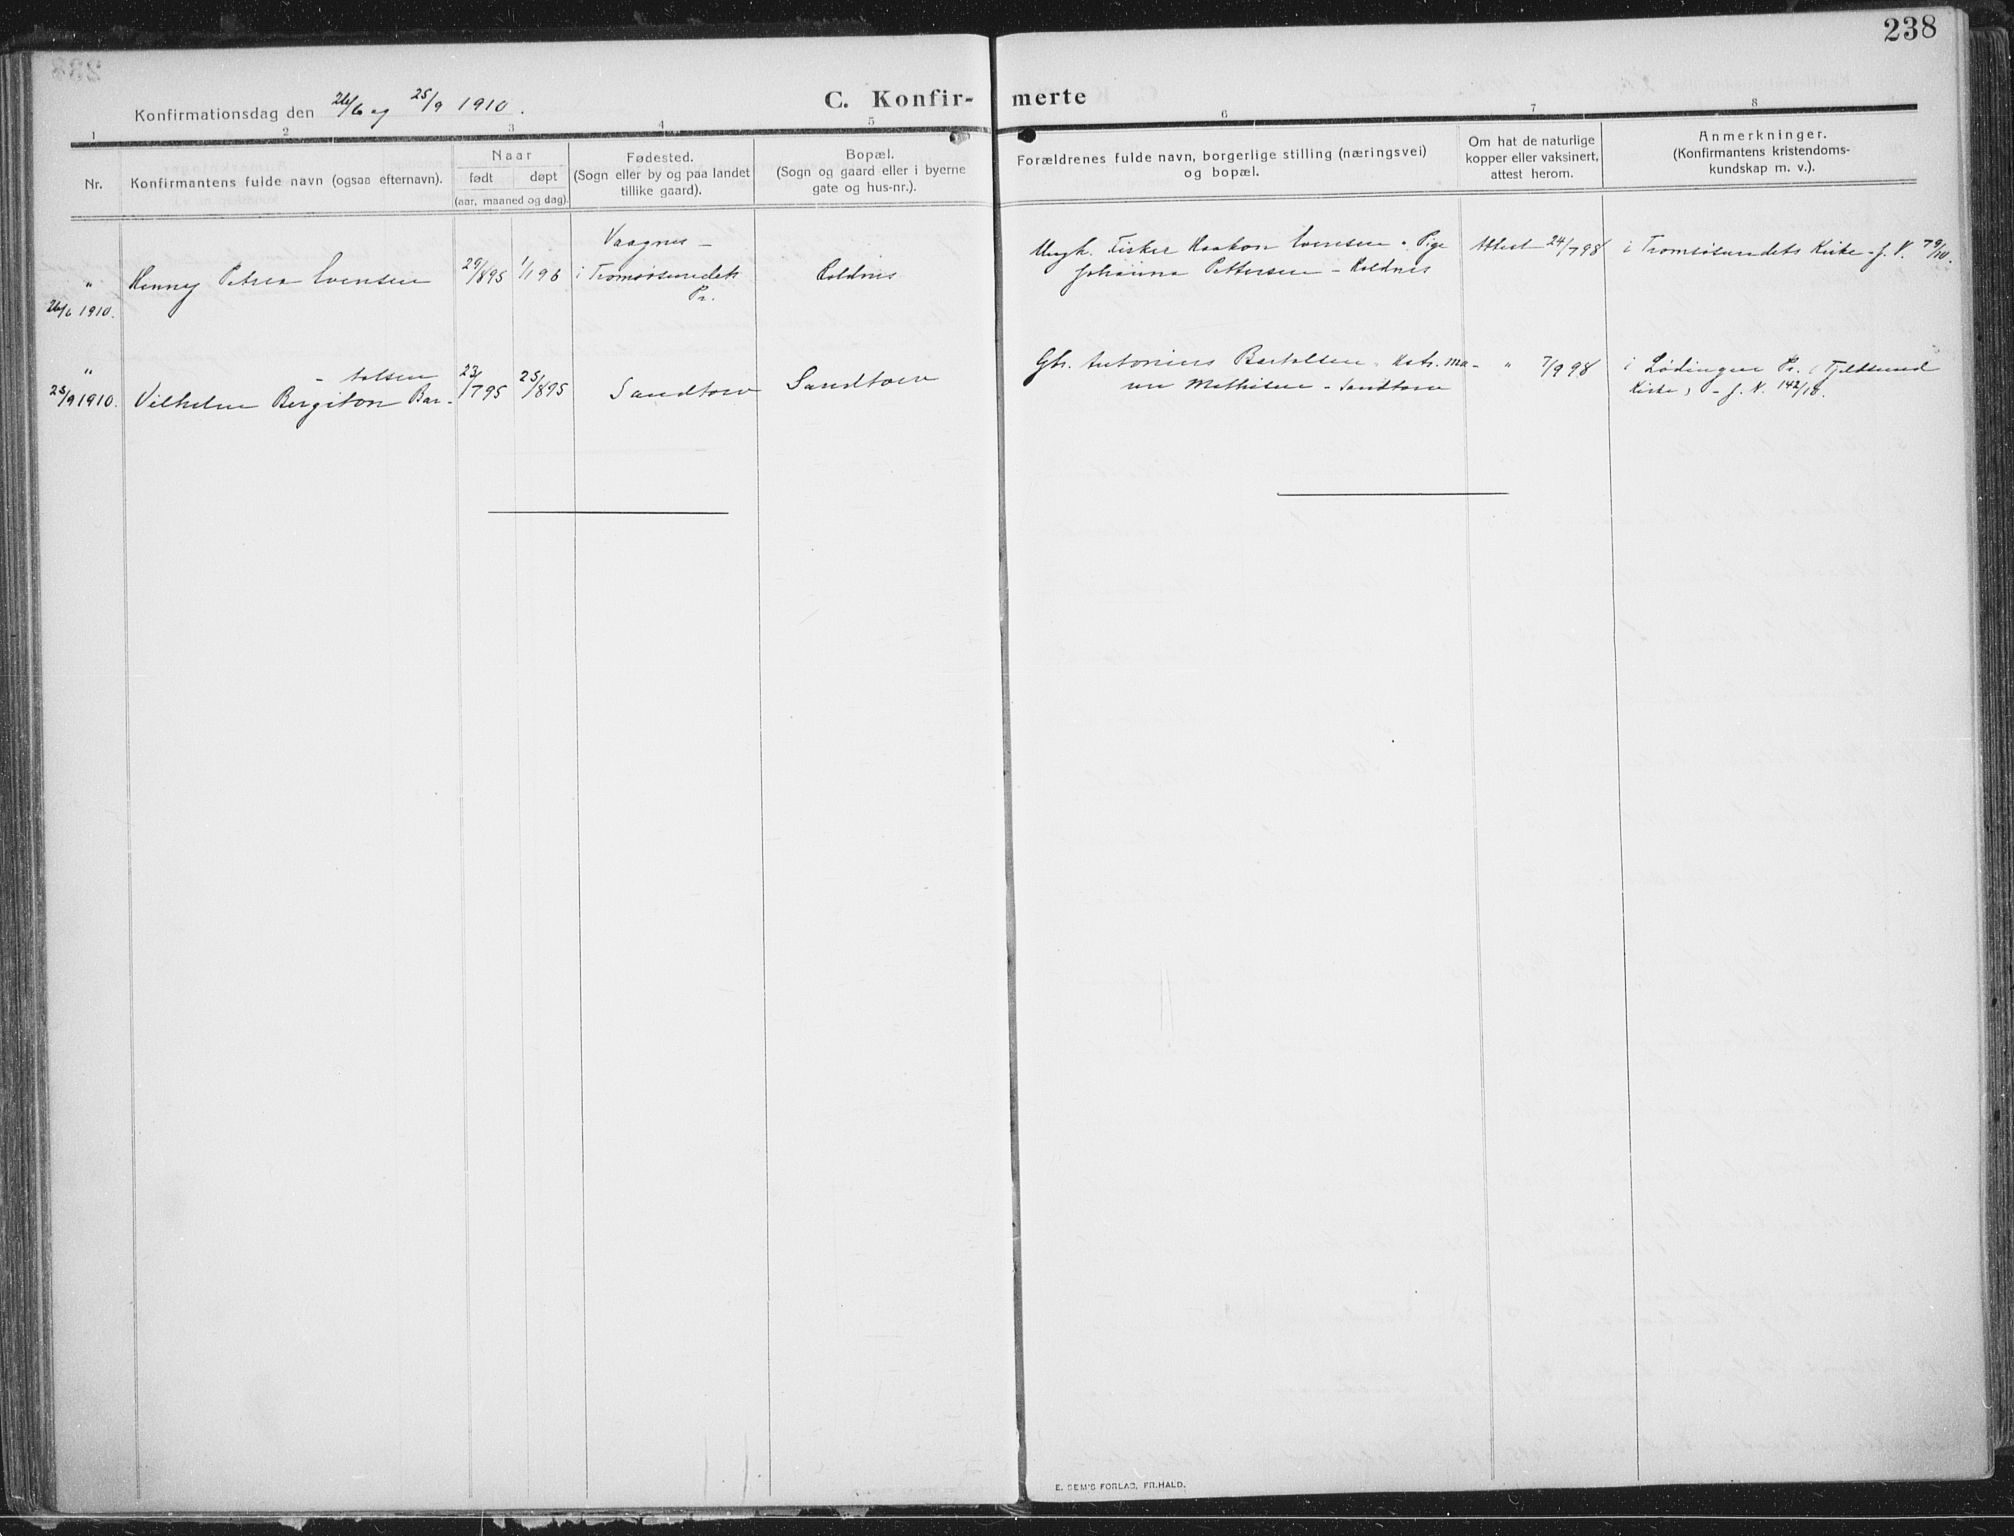 238
Konfirmationsdag den 26/6 og 25/9 1910.
C. Konfir-merte
1 2 3 4 5 6 7 8
Nr.
Konfirmantens fulde navn (ogsaa efternavn).
Naar
født døpt
(aar, maaned og dag).
Fødested.
(Sogn eller by og paa landet
tillike gaard).
Bopæl.
(Sogn og gaard eller i byerne
gate og hus-nr.).
Forældrenes fulde navn, borgerlige stilling (næringsvei)
og bopæl.
Om hat de naturlige
kopper eller vaksinert,
attest herom.
Anmerkninger.
(Konfirmantens kristendoms-
kundskap m. v.).
"
26/6 1910.
Henny Petrea Evensen
29/895 1/196
Vaagnes -
i Tromsøsundets
Pr.
Coldnes
Ungk. Fisker Haakon Evensen o. Pige
Johanna Pettersen - Koldnes
Attest 24/798
i Tromsøsundets Kirke - j. N. 79/10.
"
25/9 1910.
- tolsen
Vilhelm Bergiton Bar-
23/795 25/895
Sandtorv
Sandtorv
Gbr. Antonius Bartolsen o. Hstr. Ma-
ren Mathisen - Sandtorv
" 7/998
i Lødingen Pr. i Tjeldsund
Kirke, - j. N. 142/10.
E. SEM'S FORLAG, FR.HALD.